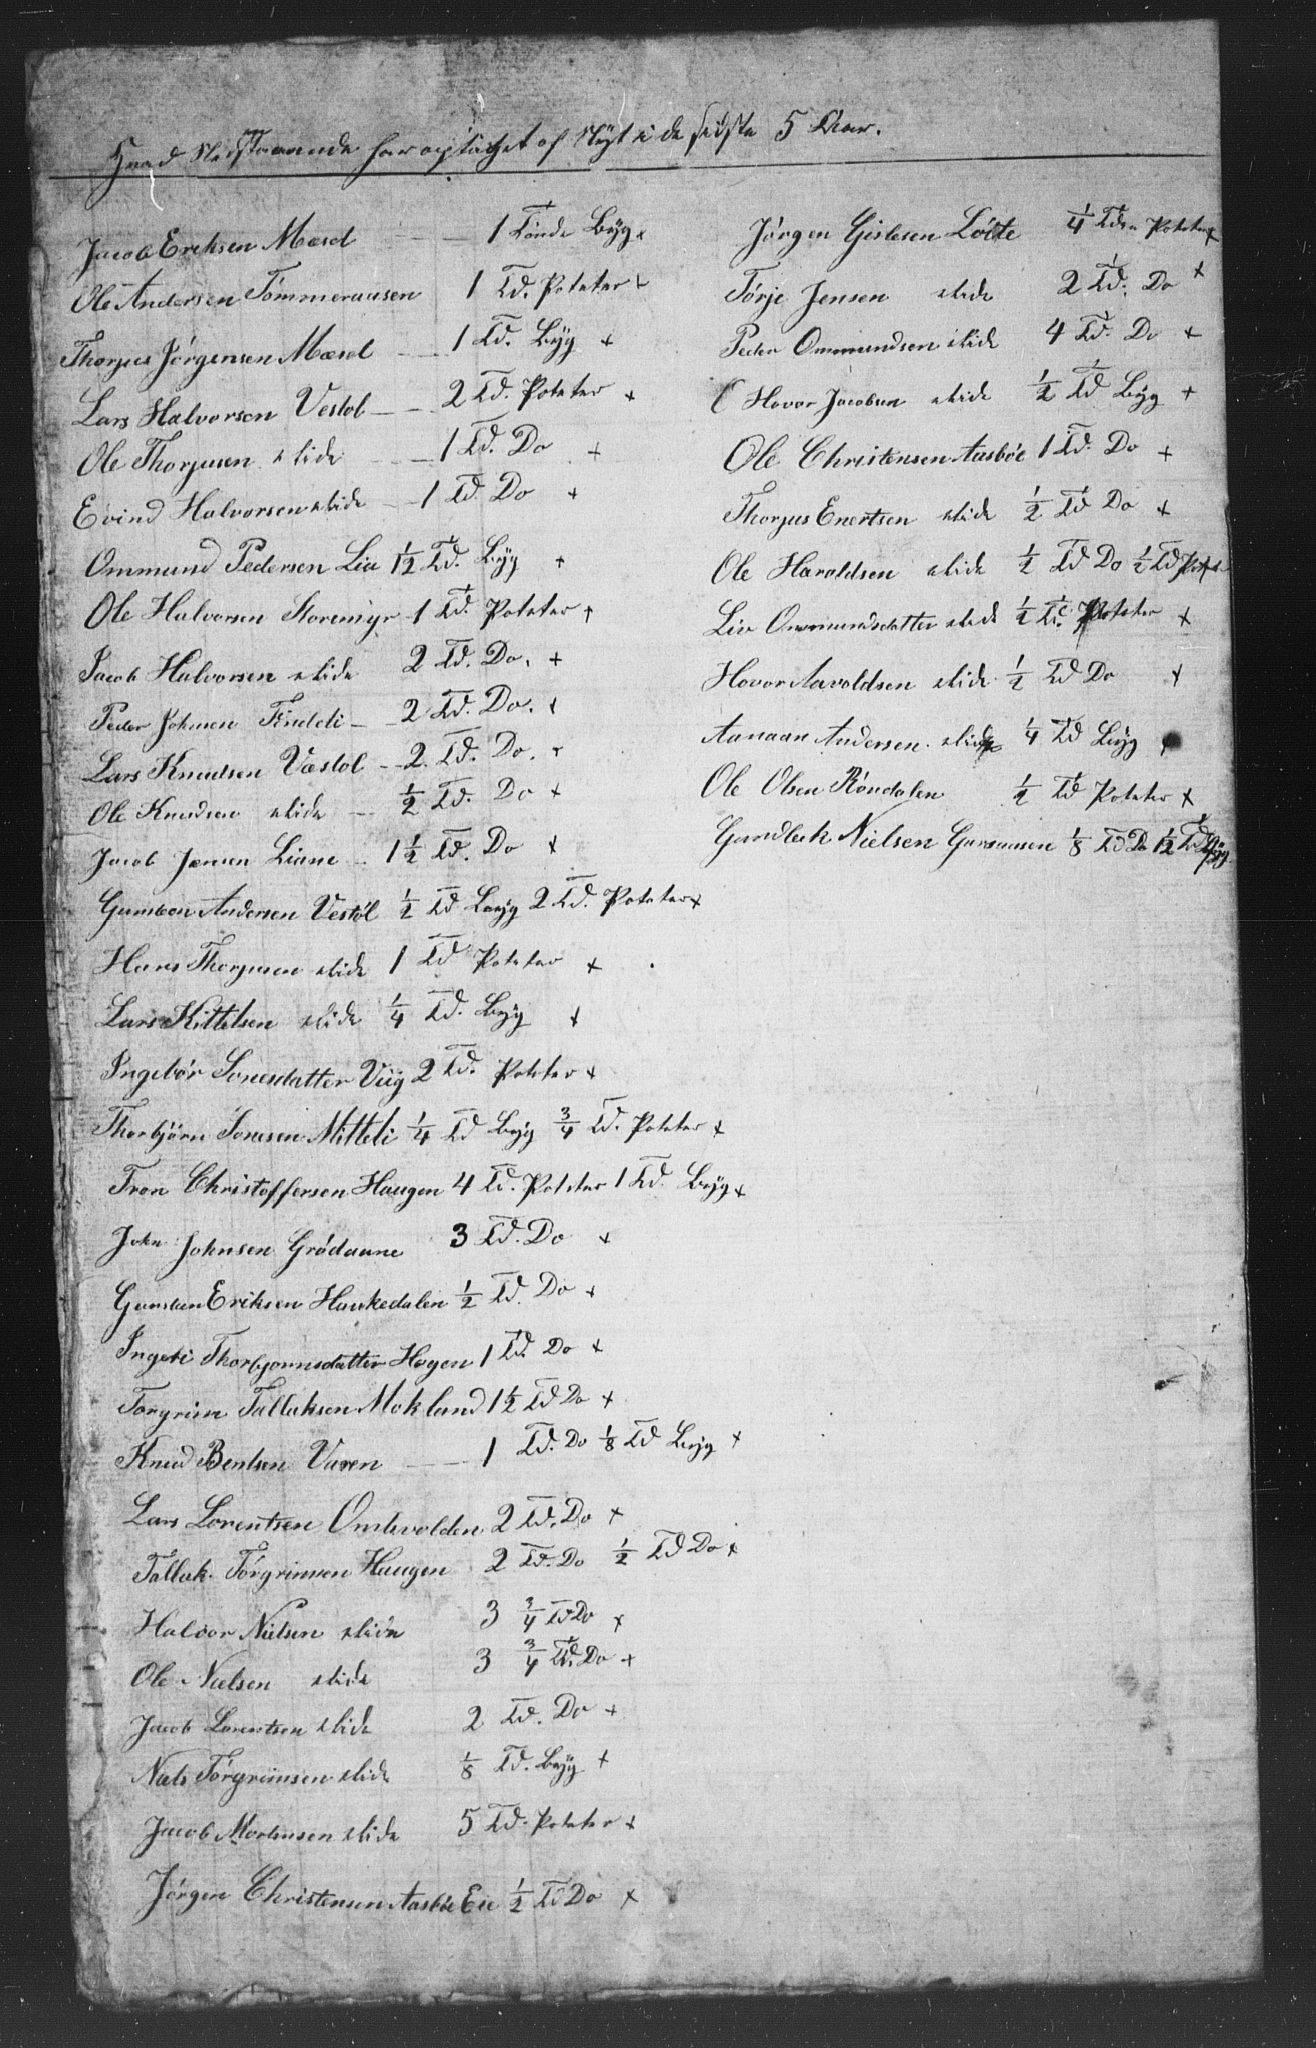 Hvad Nedstaaende har optaget af Nyt i de sidste 5 Aar.
Jacob Eriksen Mæsel — 1 Tönde Byg x
Ole Andersen Tömmeraasen 1 Td. Poteter x
Thorjus Jörgensen Mæsel — 1 Td. Byg x
Lars Halvorsen Vestöl — 2 Td. Poteter x
Ole Thorjusen stide — 1 Td. Do x
Evind Halvorsen stide — 1 Td. Do x
Ommund Pedersen Lia 1 1/2 Td. Byg x
Ole Halvorsen Storemyr 1 Td. Poteter x
Jacob Halvorsen stide 2 Td. Do. x
Peder Johnsen — 2 Td. Do. x
Lars Knudsen Væstöl — 2. Td. Do. x
Ole Knudsen stide — 1/2 Td. Do x
Jacob Jensen Liane — 1 1/2 Td. Do x
Andersen Vestöl 1/2 Td Byg 2 Td. Poteter x
Hans Thorjusen stide 1 Td Poteter x
Lars Kittelsen stide 1/4 Td. Byg x
Ingebör Sonesdatter Viig 2 Td. Poteter x
Thorbjörn Sonesen Mitteli 1/4 Td Byg 3/4 Td. Poteter x
Tron Christoffersen Haugen 4 Td. Poteter 1 Td. Byg x
John Johnsen Grödaane 3 Td. Do x
Eriksen Haukedalen 1/2 Td. Do x
Thorbjornsdatter Hogen 1 Td. Do x
Torgrim Tallaksen Mokland 1 1/2 Td Do x
Knud Bentsen Vasen — 1 Td. Do 1/8 Td Byg x
Lars Lorentsen Omlivolden 2 Td. Do x
Tallak Törgrimsen Haugen 2 Td. Do 1/2 Td Do x
Halvor Nielsen stide 3 3/4 Td Do x
Ole Nielsen stide 3 3/4 Td. Do x
Jacob Lorentsen stide 2 Td. Do x
Niels Törgrimsen stide 1/8 Td. Byg x
Jacob Mortensen stide 5 Td. Poteter x
Jörgen Christensen Aasböe Eie 1/2 Td Do x
Jörgen Gislesen Löite 1/4 Tdr Poteter x
Törje Jensen stide 2 Td. Do x
Peder Ommundsen stide 4 Td. Do x
Hovor Jacobsen stide 1/2 Td Byg x
Ole Christensen Aasböe 1 Td. Do x
Thorjus Enertsen stide 1/2 Td Do x
Ole Haroldsen stide 1/2 Td Do 1/2 Td Potet x
Liv Ommundsdatter stide 1/2 Td. Poteter x
Hovor Aavoldsen stide 1/2 Td Do x
Aanaan Andersen stide 1/4 Td Byg x
Ole Olsen Röndalen 1/2 Td Poteter x
Gundlech Nielsen 1/8 Td Do 1 1/2 Td Byg